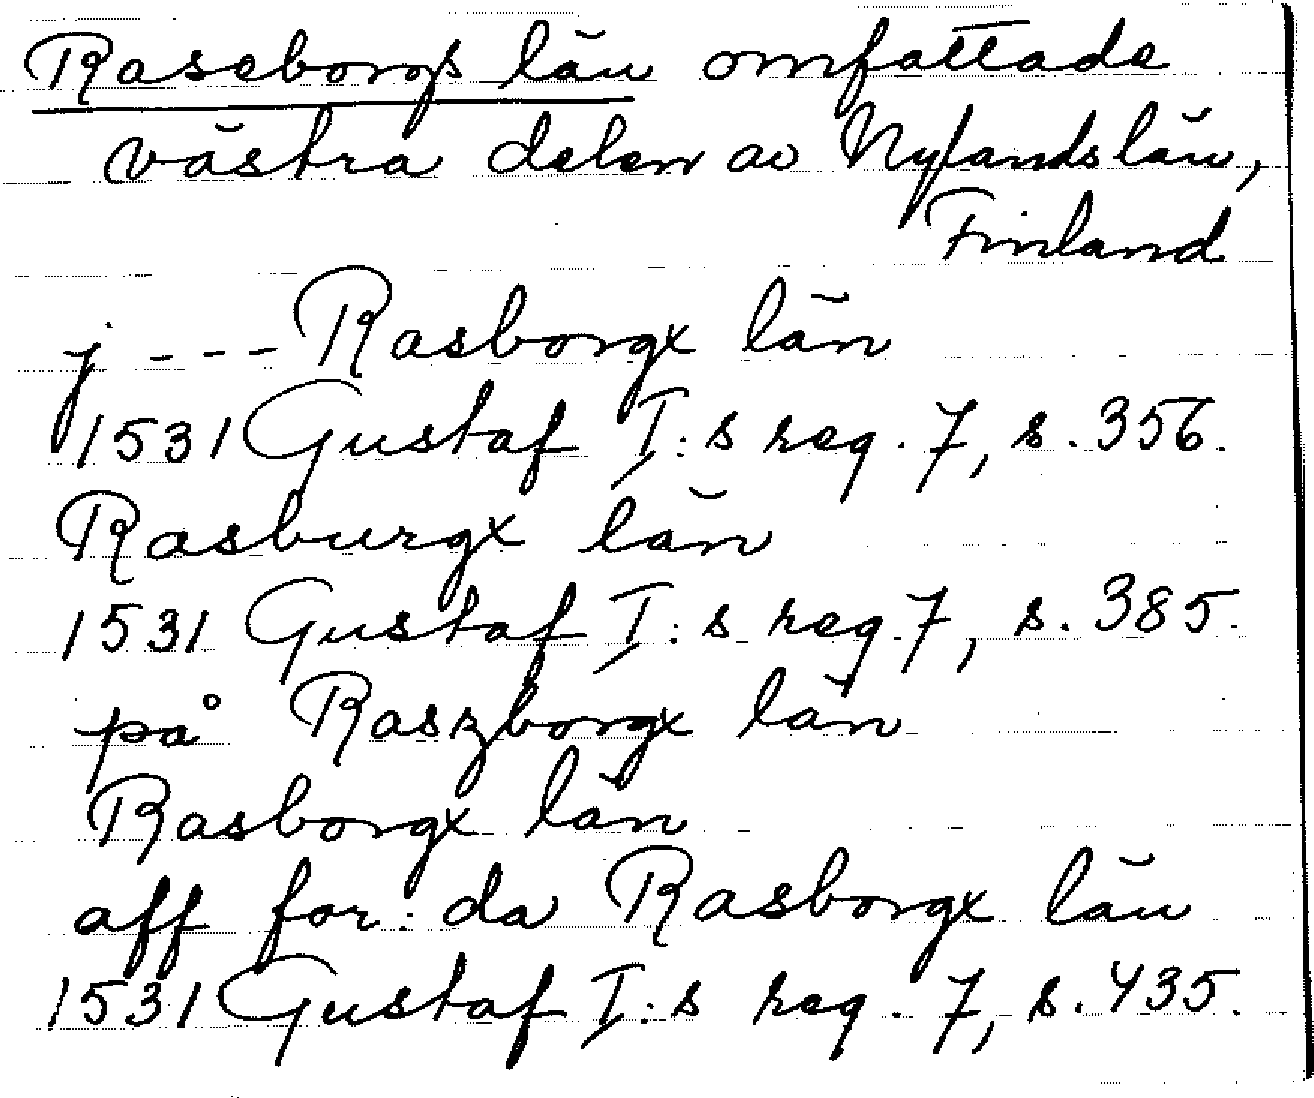 Raseborgs län omfattade
västra delen av Nylands län,
Finland
j --- Rasborgx län
1531 Gustaf I:s reg. 7, s. 356.
Rasburgx län
1531 Gustaf I:s reg. 7, s. 385.
på Raszborgx län
Rasborgx län
aff for:da Rasborgx län
1531 Gustaf I:s reg. 7, s. 435.